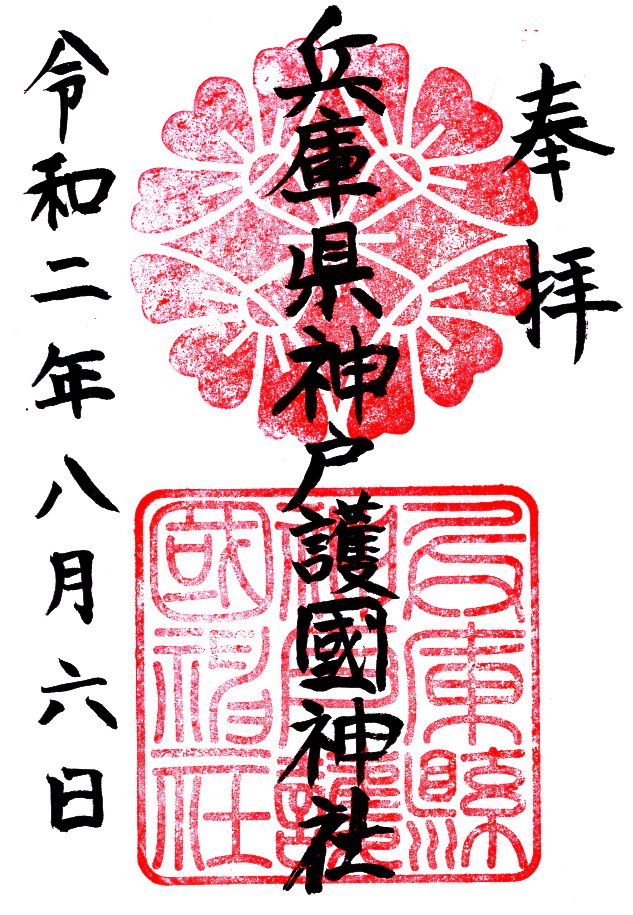 奉拝
兵庫県神戸護國神社
兵庫縣
神戸護
國神社
令和二年八月六日